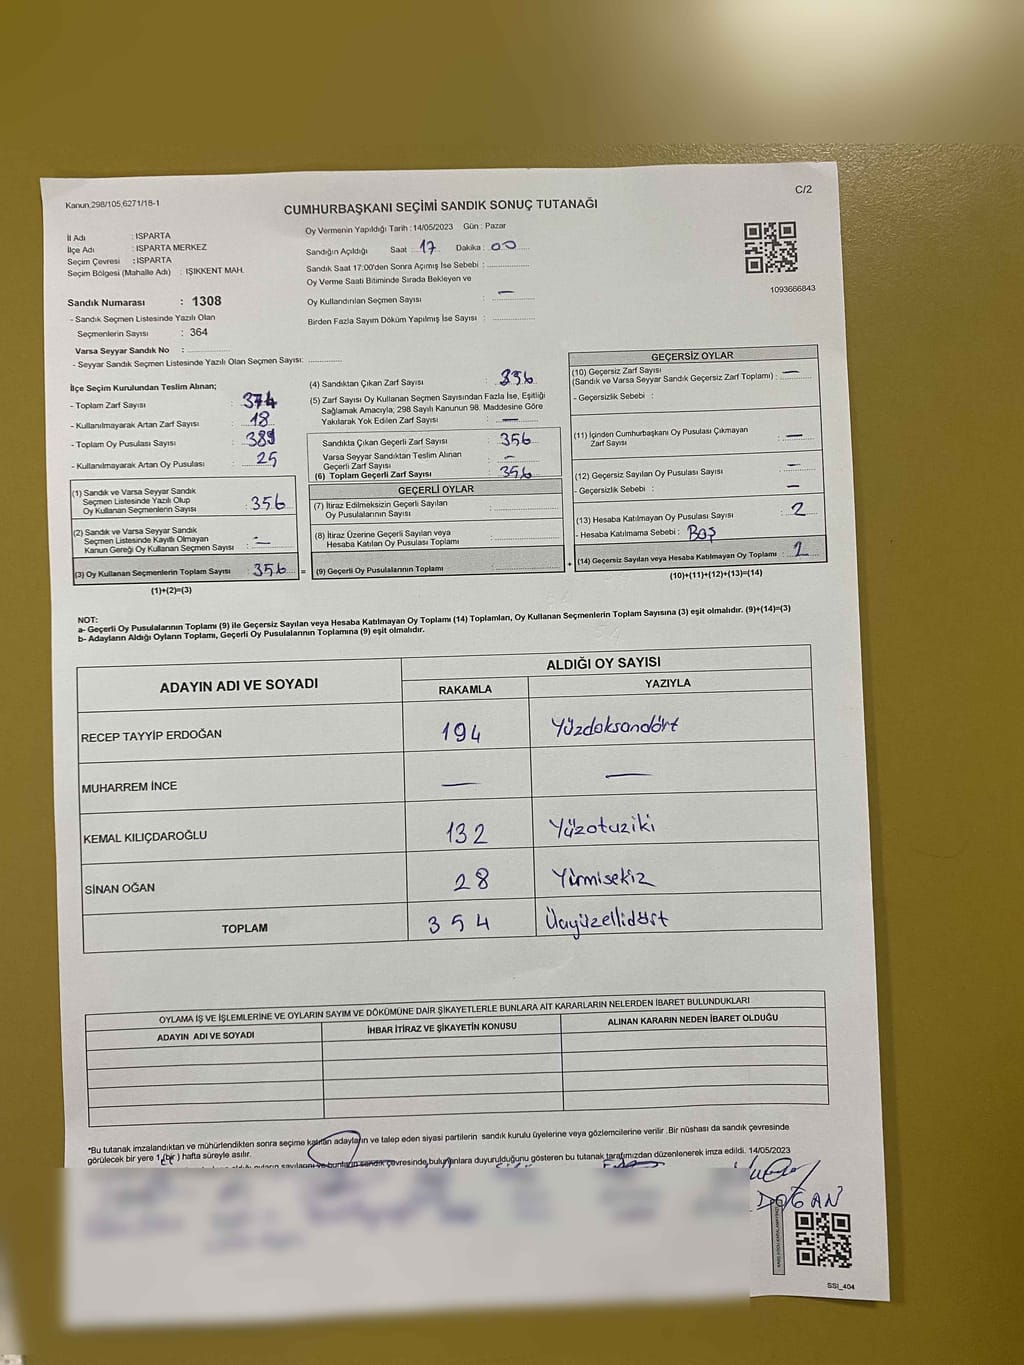 Kanun,298/105,6271/18-1
C/2
CUMHURBAŞKANI SEÇİMİ SANDIK SONUÇ TUTANAĞI
İl Adı : ISPARTA
İlçe Adı : ISPARTA MERKEZ
Seçim Çevresi : ISPARTA
Seçim Bölgesi (Mahalle Adı) : IŞIKKENT MAH.
Sandık Numarası : 1308
- Sandık Seçmen Listesinde Yazılı Olan
Seçmenlerin Sayısı : 364
Varsa Seyyar Sandık No :
- Seyyar Sandık Seçmen Listesinde Yazılı Olan Seçmen Sayısı:
Oy Vermenin Yapıldığı Tarih : 14/05/2023 Gün : Pazar
Sandığın Açıldığı Saat : 17 Dakika : 00
Sandık Saat 17:00'den Sonra Açımış İse Sebebi :
Oy Verme Saati Bitiminde Sırada Bekleyen ve
Oy Kullandırılan Seçmen Sayısı : —
Birden Fazla Sayım Döküm Yapılmış İse Sayısı :
1093666843
İlçe Seçim Kurulundan Teslim Alınan;
- Toplam Zarf Sayısı : 374
- Kullanılmayarak Artan Zarf Sayısı : 18
- Toplam Oy Pusulası Sayısı : 389
- Kullanılmayarak Artan Oy Pusulası : 25
(1) Sandık ve Varsa Seyyar Sandık
Seçmen Listesinde Yazılı Olup
Oy Kullanan Seçmenlerin Sayısı : 356
(2) Sandık ve Varsa Seyyar Sandık
Seçmen Listesinde Kayıtlı Olmayan
Kanun Gereği Oy Kullanan Seçmen Sayısı : —
(3) Oy Kullanan Seçmenlerin Toplam Sayısı : 356 =
(1)+(2)=(3)
(4) Sandıktan Çıkan Zarf Sayısı : 356
(5) Zarf Sayısı Oy Kullanan Seçmen Sayısından Fazla İse, Eşitliği
Sağlamak Amacıyla, 298 Sayılı Kanunun 98. Maddesine Göre
Yakılarak Yok Edilen Zarf Sayısı : —
Sandıkta Çıkan Geçerli Zarf Sayısı : 356
Varsa Seyyar Sandıktan Teslim Alınan
Geçerli Zarf Sayısı : —
(6) Toplam Geçerli Zarf Sayısı : 356
GEÇERLİ OYLAR
(7) İtiraz Edilmeksizin Geçerli Sayılan
Oy Pusulalarının Sayısı :
(8) İtiraz Üzerine Geçerli Sayılan veya
Hesaba Katılan Oy Pusulası Toplamı :
(9) Geçerli Oy Pusulalarının Toplamı : +
GEÇERSİZ OYLAR
(10) Geçersiz Zarf Sayısı
(Sandık ve Varsa Seyyar Sandık Geçersiz Zarf Toplamı) : —
- Geçersizlik Sebebi :
(11) İçinden Cumhurbaşkanı Oy Pusulası Çıkmayan
Zarf Sayısı : —
(12) Geçersiz Sayılan Oy Pusulası Sayısı : —
- Geçersizlik Sebebi : —
(13) Hesaba Katılmayan Oy Pusulası Sayısı : 2
- Hesaba Katılmama Sebebi : Boş
(14) Geçersiz Sayılan veya Hesaba Katılmayan Oy Toplamı : 2
(10)+(11)+(12)+(13)=(14)
NOT:
a- Geçerli Oy Pusulalarının Toplamı (9) ile Geçersiz Sayılan veya Hesaba Katılmayan Oy Toplamı (14) Toplamları, Oy Kullanan Seçmenlerin Toplam Sayısına (3) eşit olmalıdır. (9)+(14)=(3)
b- Adayların Aldığı Oyların Toplamı, Geçerli Oy Pusulalarının Toplamına (9) eşit olmalıdır.
ADAYIN ADI VE SOYADI
ALDIĞI OY SAYISI
RAKAMLA YAZIYLA
RECEP TAYYİP ERDOĞAN 194 Yüzdoksandört
MUHARREM İNCE — —
KEMAL KILIÇDAROĞLU 132 Yüzotuziki
SİNAN OĞAN 28 Yirmisekiz
TOPLAM 354 Üçyüzellidört
OYLAMA İŞ VE İŞLEMLERİNE VE OYLARIN SAYIM VE DÖKÜMÜNE DAİR ŞİKAYETLERLE BUNLARA AİT KARARLARIN NELERDEN İBARET BULUNDUKLARI
ADAYIN ADI VE SOYADI İHBAR İTİRAZ VE ŞİKAYETİN KONUSU ALINAN KARARIN NEDEN İBARET OLDUĞU
*Bu tutanak imzalandıktan ve mühürlendikten sonra seçime katılan adayların ve talep eden siyasi partilerin sandık kurulu üyelerine veya gözlemcilerine verilir .Bir nüshası da sandık çevresinde
görülecek bir yere 1 (bir) hafta süreyle asılır.
sandık çevresinde bulunanlara duyurulduğunu gösteren bu tutanak tarafımızdan düzenlenerek imza edildi. 14/05/2023
DOĞAN
SSI_404